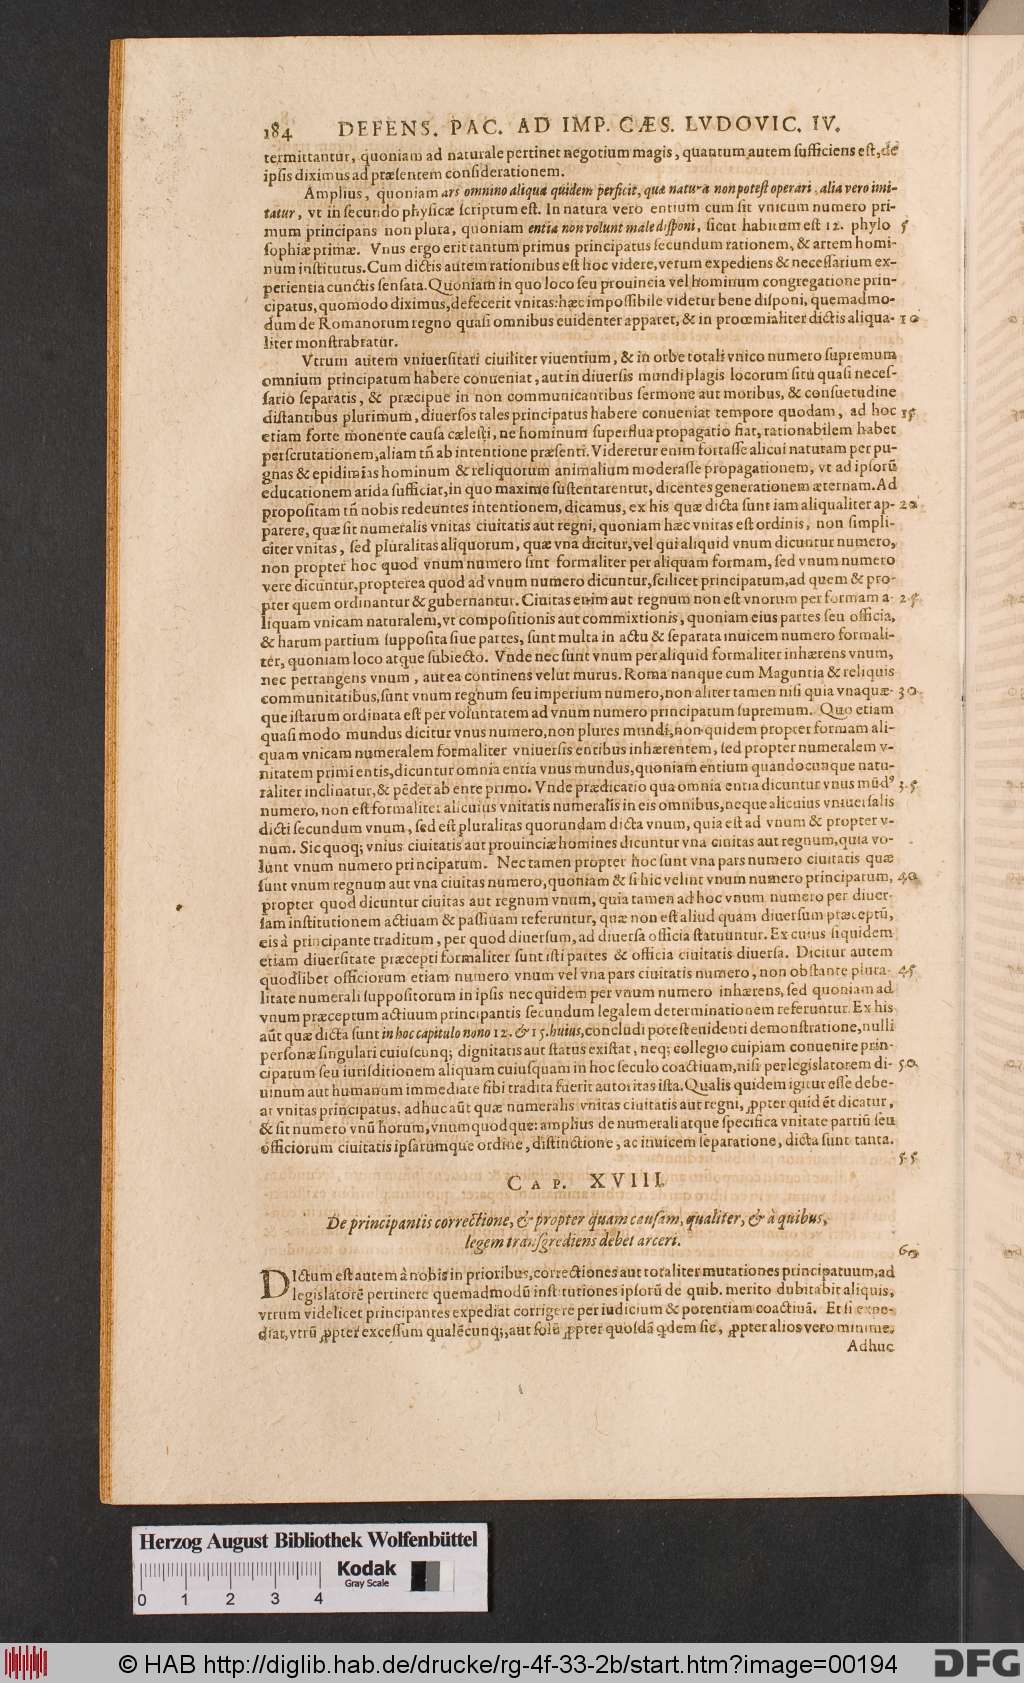 184 DEFENS. PAC. AD IMP. CÆS. LVDOVIC. IV.
termittantur, quoniam ad naturale pertinet negotium magis, quantum autem sufficiens est, de
ipsis diximus ad præsentem considerationem.
Amplius, quoniam ars omnino aliqua quidem perficit, quæ natura non potest operari, alia vero imi-
tatur, vt in secundo physicæ scriptum est. In natura vero entium cum sit vnicum numero pri-
mum principans non plura, quoniam entia non volunt male disponi, sicut habitum est 12. phylo 5
sophiæ primæ. Vnus ergo erit tantum primus principatus secundum rationem, & artem homi-
num institutus. Cum dictis autem rationibus est hoc videre, verum expediens & necessarium ex-
perientia cunctis sensata. Quoniam in quo loco seu prouincia vel hominum congregatione prin-
cipatus, quomodo diximus, defecerit vnitas: hæc impossibile videtur bene disponi, quemadmo-
dum de Romanorum regno quasi omnibus euidenter apparet, & in prooemialiter dictis aliqua- 10
liter monstrabtatur.
Vtrum autem vniuersitati ciuiliter viuentium, & in orbe totali vnico numero supremum
omnium principatum habere conueniat, aut in diuersis mundi plagis locorum situ quasi neces-
sario separatis, & præcipue in non communicantibus sermone aut moribus, & consuetudine
distantibus plurimum, diuersos tales principatus habere conueniat tempore quodam, ad hoc 15
etiam forte monente causa cælesti, ne hominum superflua propagatio fiat, rationabilem habet
perscrutationem, aliam tñ ab intentione præsenti. Videretur enim fortasse alicui naturam per pu-
gnas & epidimias hominum & reliquorum animalium moderasse propagationem, vt ad ipsorũ
educationem arida sufficiat, in quo maxime sustentarentur, dicentes generationem æternam. Ad
propositam tñ nobis redeuntes intentionem, dicamus, ex his quæ dicta sunt iam aliqualiter ap- 20
parere, quæ sit numeralis vnitas ciuitatis aut regni, quoniam hæc vnitas est ordinis, non simpli-
citer vnitas, sed pluralitas aliquorum, quæ vna dicitur, vel qui aliquid vnum dicuntur numero,
non propter hoc quod vnum numero sint formaliter per aliquam formam, sed vnum numero
vere dicuntur, propterea quod ad vnum numero dicuntur, scilicet principatum, ad quem & pro-
pter quem ordinantur & gubernantur. Ciuitas enim aut regnum non est vnorum per formam a- 25
liquam vnicam naturalem, vt compositionis aut commixtionis, quoniam eius partes seu officia,
& harum partium supposita siue partes, sunt multa in actu & separata inuicem numero formali-
ter, quoniam loco atque subiecto. Vnde nec sunt vnum per aliquid formaliter inhærens vnum,
nec pertangens vnum, aut ea continens velut murus. Roma nanque cum Maguntia & reliquis
communitatibus, sunt vnum regnum seu imperium numero, non aliter tamen nisi quia vnaquæ- 30
que istarum ordinata est per voluntatem ad vnum numero principatum supremum. Quo etiam
quasi modo mundus dicitur vnus numero, non plures mundi, non quidem propter formam ali-
quam vnicam numeralem formaliter vniuersis entibus inhærentem, sed propter numeralem v-
nitatem primi entis, dicuntur omnia entia vnus mundus, quoniam entium quandocunque natu-
raliter inclinatur, & pẽdet ab ente primo. Vnde prædicatio qua omnia entia dicuntur vnus mũd⁹ 35
numero, non est formaliter alicuius vnitatis numeralis in eis omnibus, neque alicuius vniuersalis
dicti secundum vnum, sed est pluralitas quorundam dicta vnum, quia est ad vnum & propter v-
num. Sic quoq; vnius ciuitatis aut prouinciæ homines dicuntur vna ciuitas aut regnum, quia vo-
lunt vnum numero principatum. Nec tamen propter hoc sunt vna pars numero ciuitatis quæ
sunt vnum regnum aut vna ciuitas numero, quoniam & si hic velint vnum numero principatum, 40
propter quod dicuntur ciuitas aut regnum vnum, quia tamen ad hoc vnum numero per diuer-
sam institutionem actiuam & passiuam referuntur, quæ non est aliud quam diuersum præceptũ,
eis à principante traditum, per quod diuersum, ad diuersa officia statuuntur. Ex cuius siquidem
etiam diuersitate præcepti formaliter sunt isti partes & officia ciuitatis diuersa. Dicitur autem
quodlibet officiorum etiam numero vnum vel vna pars ciuitatis numero, non obstante plura- 45
litate numerali suppositorum in ipsis nec quidem per vnum numero inhærens, sed quoniam ad
vnum præceptum actiuum principantis secundum legalem determinationem referuntur. Ex his
aũt quæ dicta sunt in hoc capitulo nono 12. & 15. huius, concludi potest euidenti demonstratione, nulli
personæ singulari cuiuscunq; dignitatis aut status existat, neq; collegio cuipiam conuenire prin-
cipatum seu iurisditionem aliquam cuiusquam in hoc seculo coactiuam, nisi per legislatorem di- 50
uinum aut humanum immediate sibi tradita fuerit autoritas ista. Qualis quidem igitur esse debe-
at vnitas principatus, adhuc aũt quæ numeralis vnitas ciuitatis aut regni, ꝓpter quid ẽt dicatur,
& sit numero vnũ horum, vnumquodque: amplius de numerali atque specifica vnitate partiũ seu
officiorum ciuitatis ipsarumque ordine, distinctione, ac inuicem separatione, dicta sunt tanta.
55
CAP. XVIII.
De principantis correctione, & propter quam causam, qualiter, & à quibus,
legem transgrediens debet arceri.
60
DIctum est autem à nobis in prioribus, correctiones aut totaliter mutationes principatuum, ad
legislatorẽ pertinere quemadmodũ institutiones ipsorũ de quib. merito dubitabit aliquis,
vtrum videlicet principantes expediat corrigere per iudicium & potentiam coactiuã. Et si expe-
diat, vtrũ ꝓpter excessum qualẽcunq;, aut solũ ꝓpter quosdã qdem sic, ꝓpter alios vero minime.
Adhuc
Herzog August Bibliothek Wolfenbüttel
Kodak
Gray Scale
0 1 2 3 4
© HAB http://diglib.hab.de/drucke/rg-4f-33-2b/start.htm?image=00194
DFG